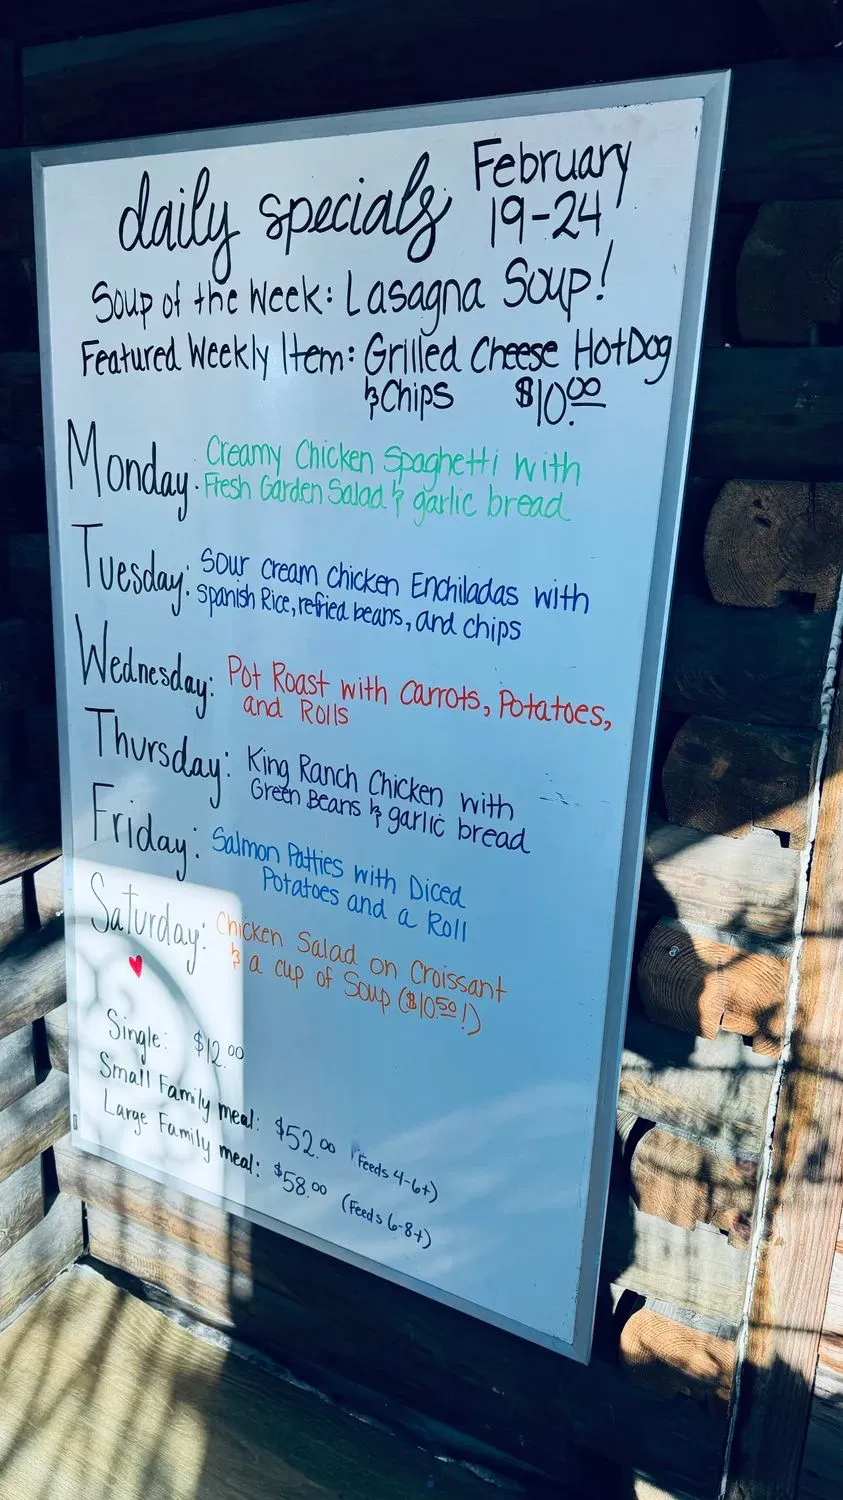 daily specials February
19-24
Soup of the Week: Lasagna Soup!
Featured Weekly Item: Grilled Cheese HotDog
& Chips $10.00
Monday: Creamy Chicken Spaghetti with
Fresh Garden Salad & garlic bread
Tuesday: Sour Cream Chicken Enchiladas with
Spanish Rice, refried beans, and chips
Wednesday: Pot Roast with Carrots, Potatoes,
and Rolls
Thursday: King Ranch Chicken with
Green Beans & garlic bread
Friday: Salmon Patties with Diced
Potatoes and a Roll
Saturday: Chicken Salad on Croissant
& a cup of Soup ($10.50!)
Single: $12.00
Small Family meal: $52.00 (Feeds 4-6+)
Large Family meal: $58.00 (Feeds 6-8+)